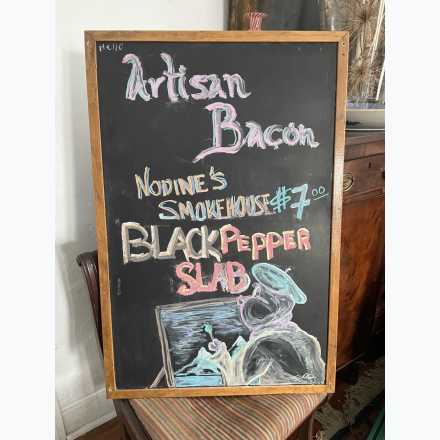 Hello
Artisan
Bacon
NODINE'S
SMOKEHOUSE $7.00
BLACK PEPPER
SLAB